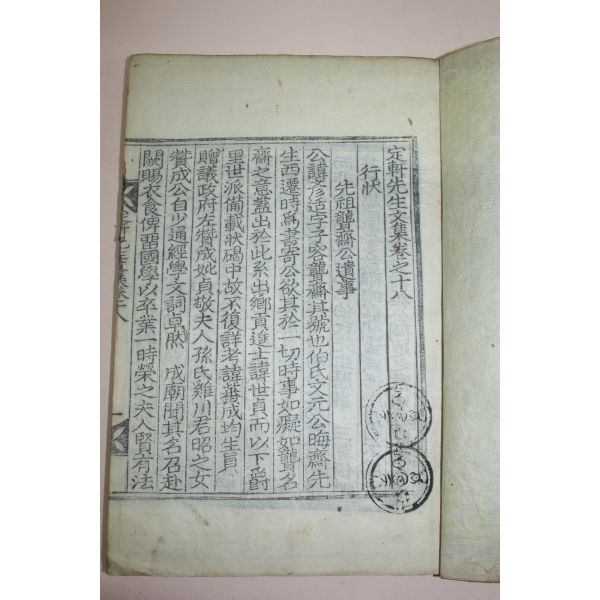 定軒先生文集卷之十八
行狀
先祖聾齋公遺事
公諱彦适字子容聾齋其號也伯氏文元公晦齋先
生西遷時爲書寄公欲其於一切時事如癡如聾名
齋之意蓋出於此系出鄕貢進士諱世貞而以下爵
里世派備載狀碣中故不復詳考諱蕃成均生員
贈議政府左贊成妣貞敬夫人孫氏雞川君昭之女
贊成公自少通經學文詞卓然 成廟聞其名召赴
闕賜衣食俾留國學以卒業一時榮之夫人賢有法